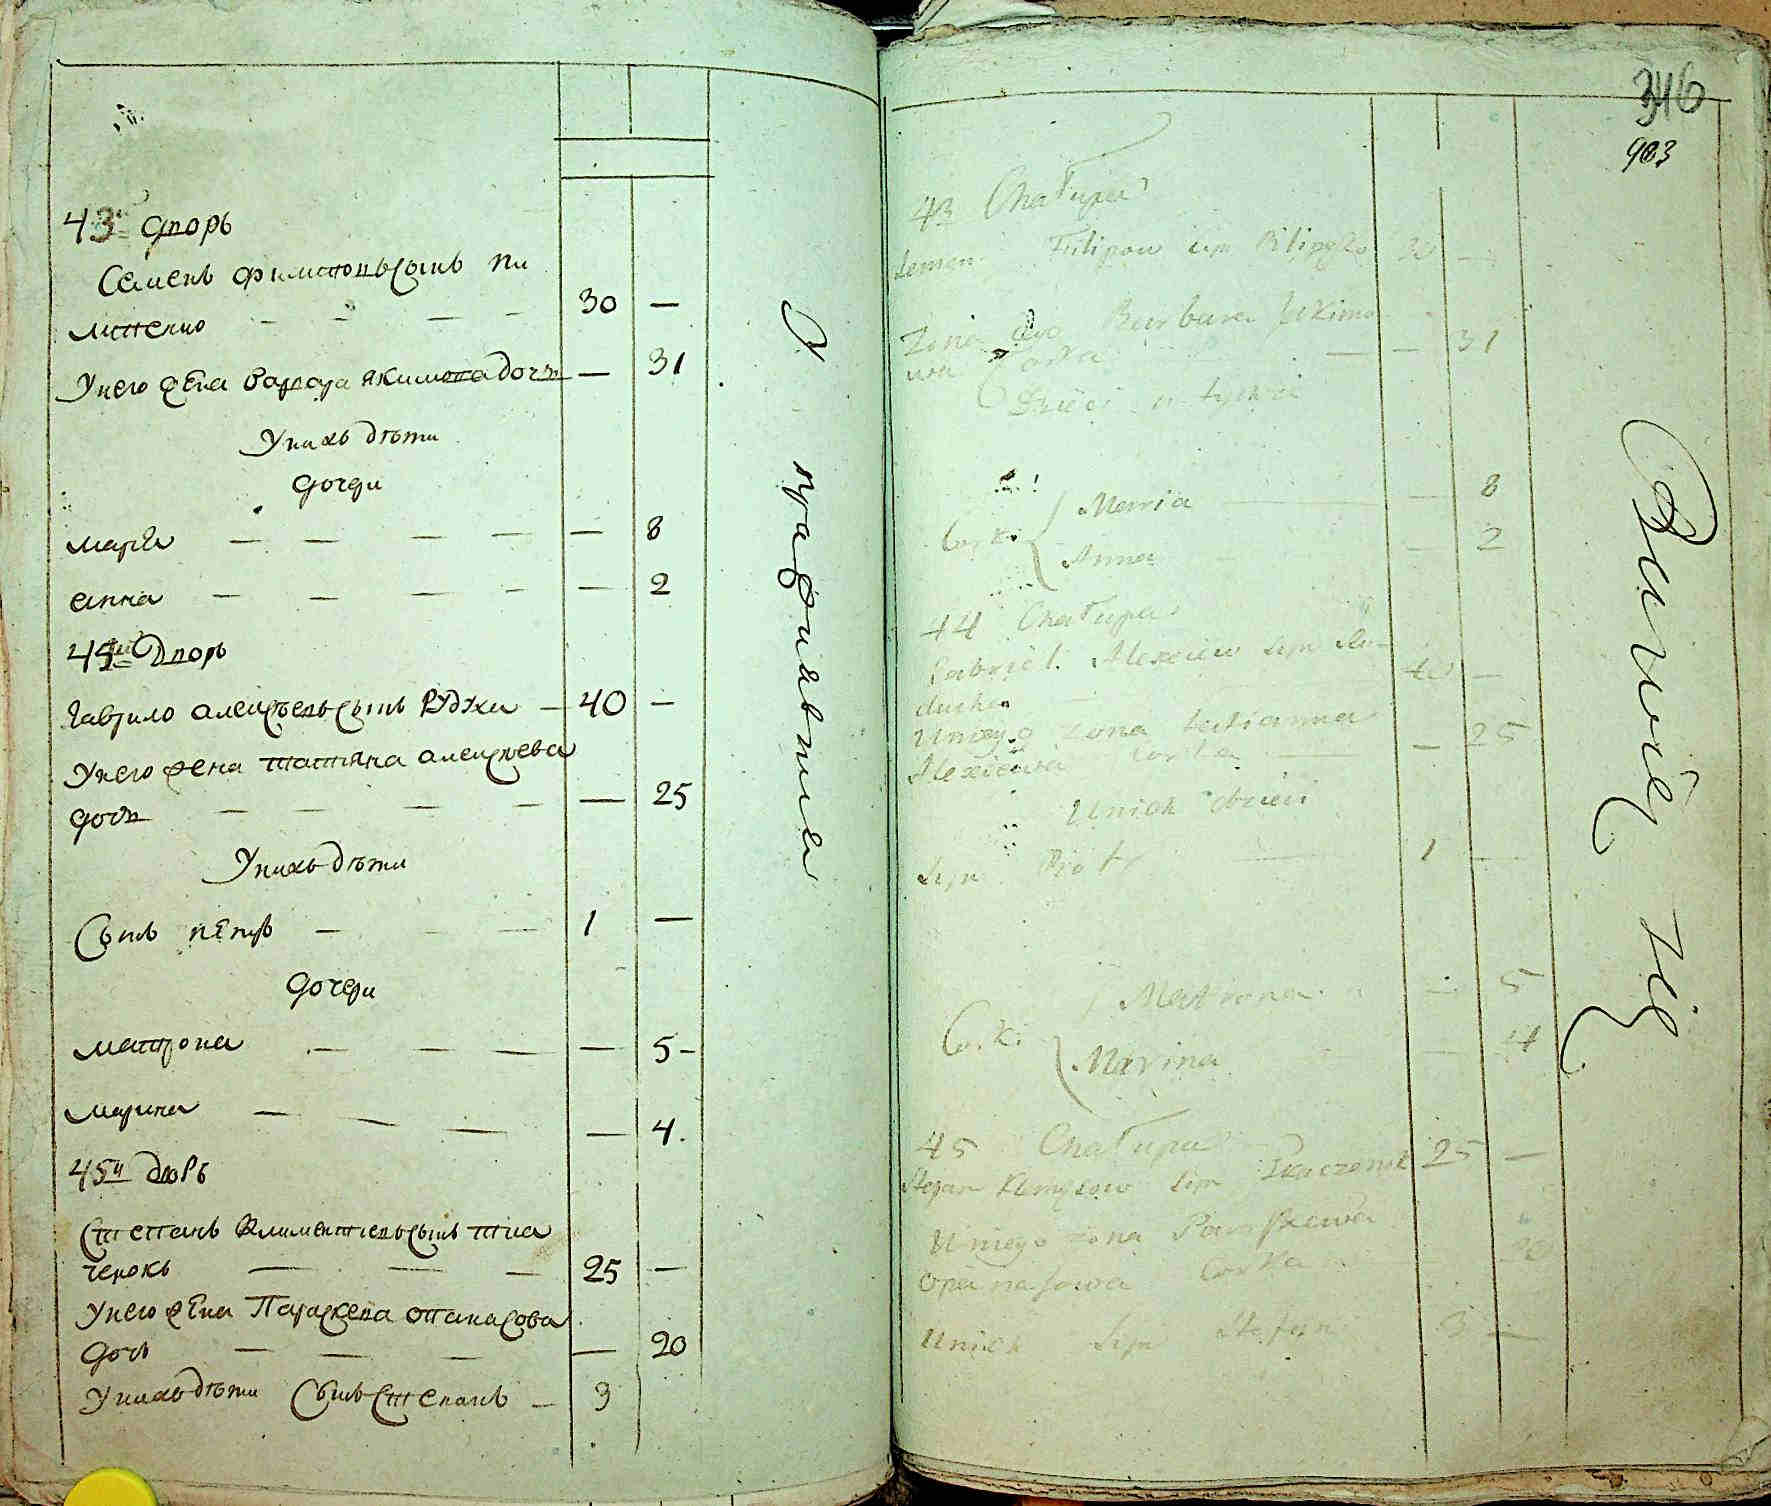 43й дворъ
Семенъ Филиповъ сынъ Пи
липенко — — — — 30 —
У него жена Варвара Якимова дочь — 31
У нихъ дѣти
дочери
Мария — — — — — 8
Анна — — — — — 2
44й Дворъ
Гаврило Алексѣевъ сынъ Рудуха — 40 —
У него жена Татьяна Алексѣева
дочь — — — — — 25
У нихъ дѣти
Сынъ Петръ — — — 1 —
дочери
Матрона — — — — 5 —
Марина — — — — 4.
45й дворъ
Степанъ Климентиевъ сынъ Тка
ченокъ — — — 25 —
У него жена Параскева Опанасова
дочь — — — — 20
У нихъ дѣти Сынъ Степанъ — 3
346
903
43 Chałupa
Semen Filipow syn Pilip 30 —
Żona ego Barbara Jakimo
wa Corka — — 31
Dzieci u tychże
Corki Marria — 8
Anna — 2
44 Chałupa
Gabriel Alexiew syn Ru-
ducha 40 —
U niego żona Tatianna
Alexiewa Corka — 25
U nich dzieci
Syn Piotr — 1 —
Corki Matrona — 5
Marina — 4
45 Chałupa
Stepan Klemęsow syn Tkaczonok 25 —
U niego żona Paraskewa
Opanasowa Corka 20
U nich syn Stefan 3 —